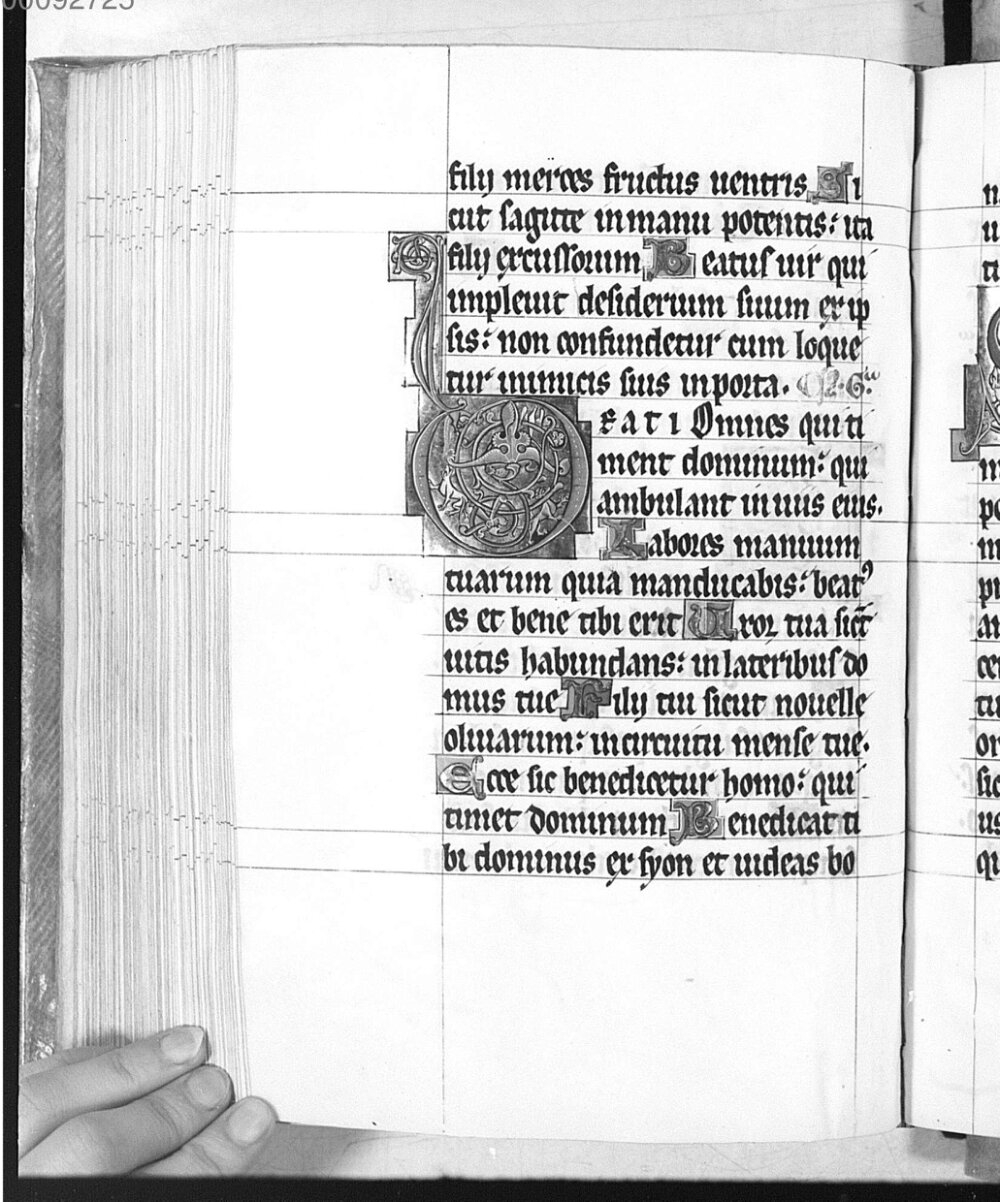 00092725
filij merces fructus uentris Si
cut sagitte in manu potentis: ita
filij excussorum Beatus uir qui
impleuit desiderium suum ex ip
sis: non confundetur cum loque
tur inimicis suis in porta.
BEATI Omnes qui ti
ment dominum: qui
ambulant in uiis eius.
Labores manuum
tuarum quia manducabis: beatꝰ
es et bene tibi erit Uxor tua sic̄t
uitis habundans: in lateribus do
mus tue Filij tui sicut nouelle
oliuarum: in circuitu mense tue.
Ecce sic benedicetur homo: qui
timet dominum Benedicat ti
bi dominus ex syon et uideas bo